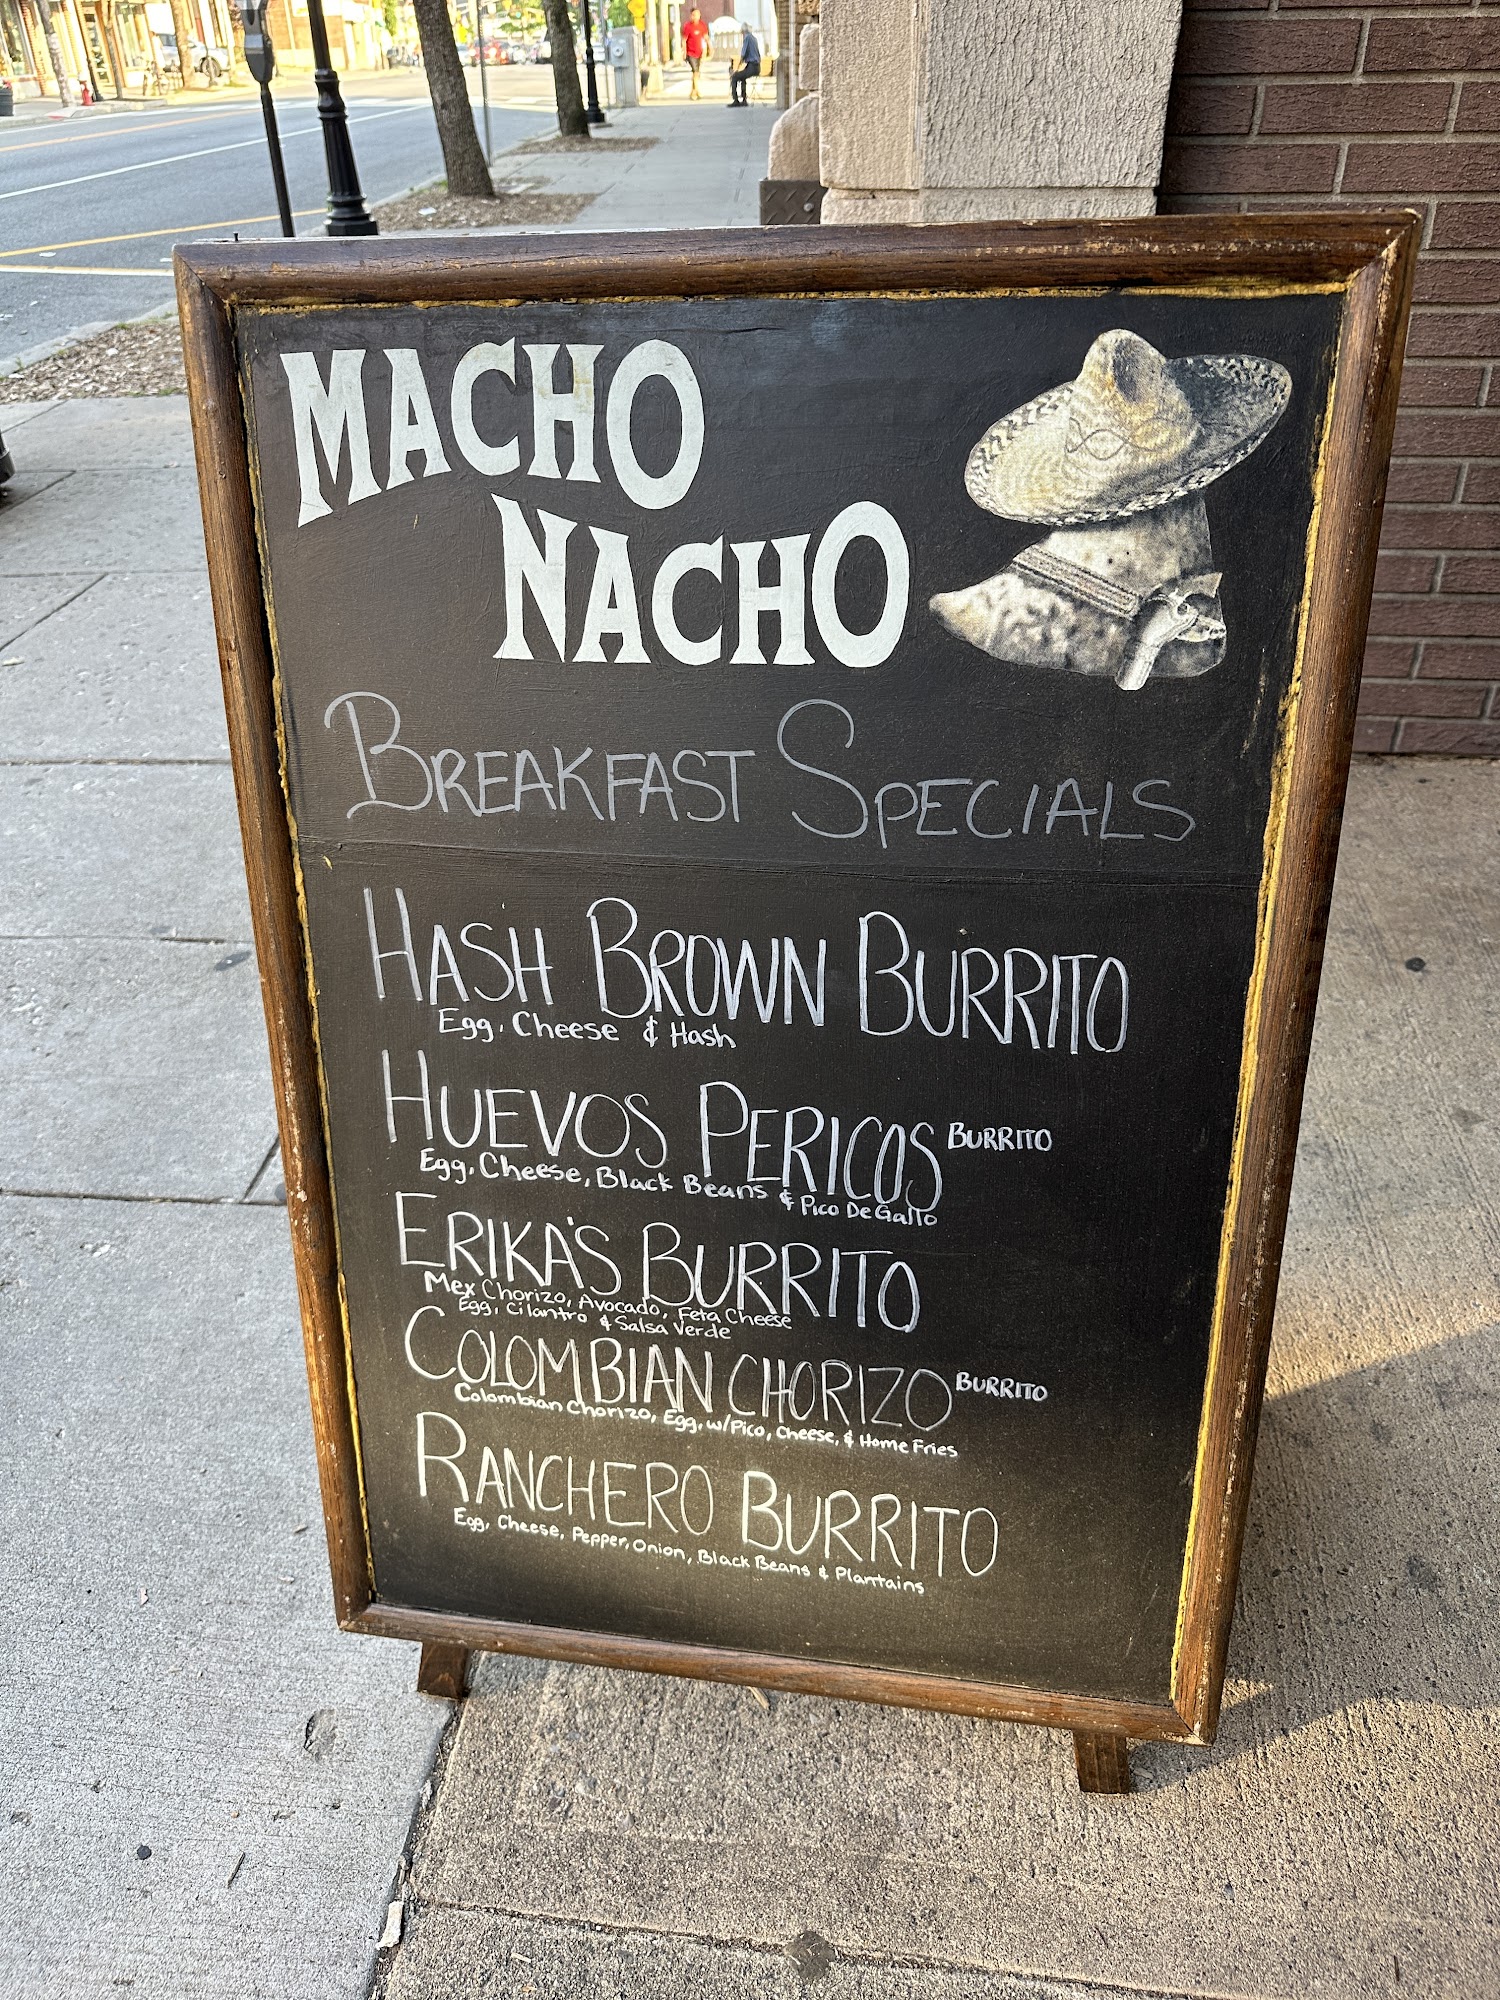 MACHO
NACHO
BREAKFAST SPECIALS
HASH BROWN BURRITO
Egg, Cheese & Hash
HUEVOS PERICOS BURRITO
Egg, Cheese, Black Beans & Pico De Gallo
ERIKA'S BURRITO
Mex Chorizo, Avocado, Feta Cheese
Egg, Cilantro & Salsa Verde
COLOMBIAN CHORIZO BURRITO
Colombian Chorizo, Egg, w/Pico, Cheese, & Home Fries
RANCHERO BURRITO
Egg, Cheese, Pepper, Onion, Black Beans & Plantains